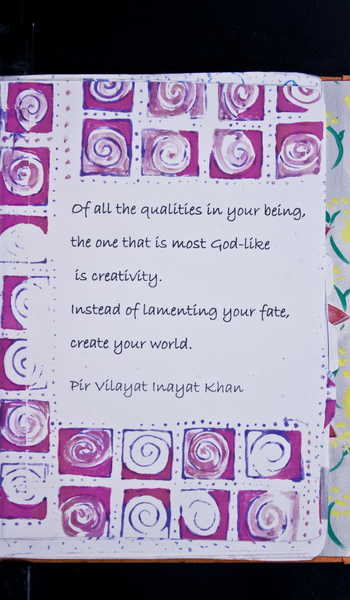 Of all the qualities in your being,
the one that is most God-like
is creativity.
Instead of lamenting your fate,
create your world.
Pir Vilayat Inayat Khan